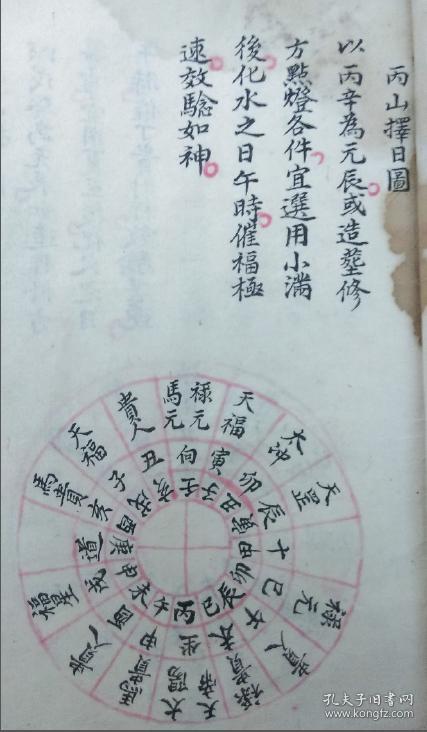 丙山擇日圖
以丙辛為元辰或造塟修
方點燈各件宜選用小滿
後化水之日午時催福極
速效騐如神
馬元
祿元
天福
太冲
天星
祿元
貴人
貴人
福星
馬貴
天福
貴人
丑
向
寅
卯
辰
十
巳
午
坐
申
酉
道
亥
子
壬
子
丑
卯
辰
巳
丙
午
未
申
庚
酉
戌
亥
孔夫子旧书网